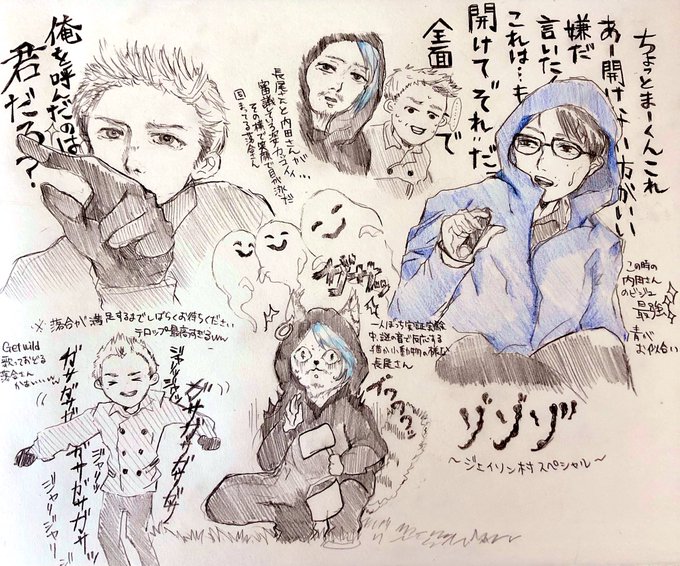 ちょっとまーくんこれ
あー開けない方がいい
嫌だ
言いた
これは…も
開けて"それ"だっ
全面
で
俺を呼んだのは
君だろ？
長尾さんと内田さんが
審議してる姿カッコイイが…
その横で笑顔で目が泳だ
固まってる落合さん
この時の
内田さん
のビジュ
最強
青が
お似合い
ガサガサ
※落合が満足するまでしばらくお待ちください
テロップ最高すぎるww
Get wild
歌っておどる
落合さん
かぁいいいい
一人ぼっち実証実験
中、謎の音で同化する
猫か小動物の様な
長尾さん
ジャリッ
ジャリッ
ガサガサ
ガサガサガサ
ガサガサガサガサッ
ジャリジャリ
ジャリジャリ
ブウウウッ
ゾゾゾ
〜ジェイソン村スペシャル〜